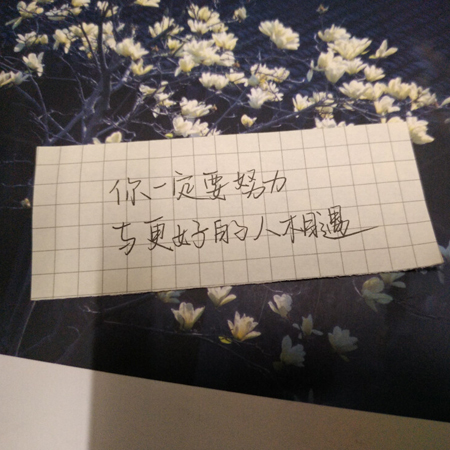 你一定要努力
与更好的人相遇